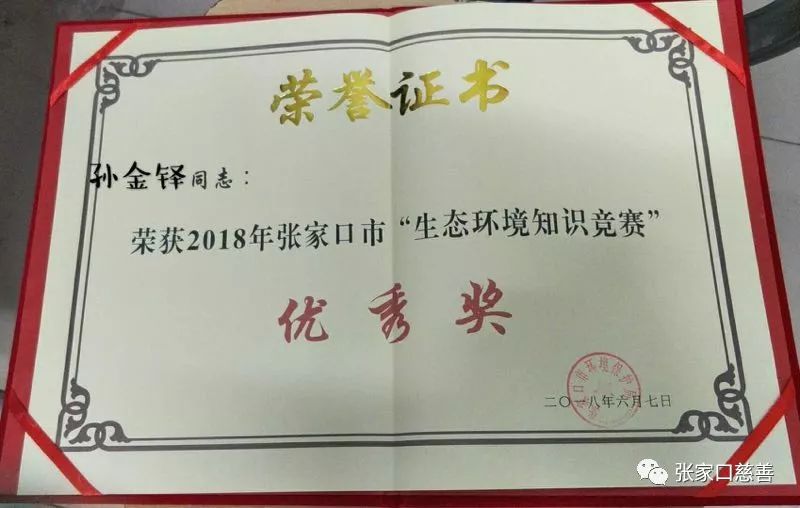 荣誉证书
孙金铎同志：
荣获2018年张家口市“生态环境知识竞赛”
优秀奖
张家口市环境保护局
二〇一八年六月七日
张家口慈善